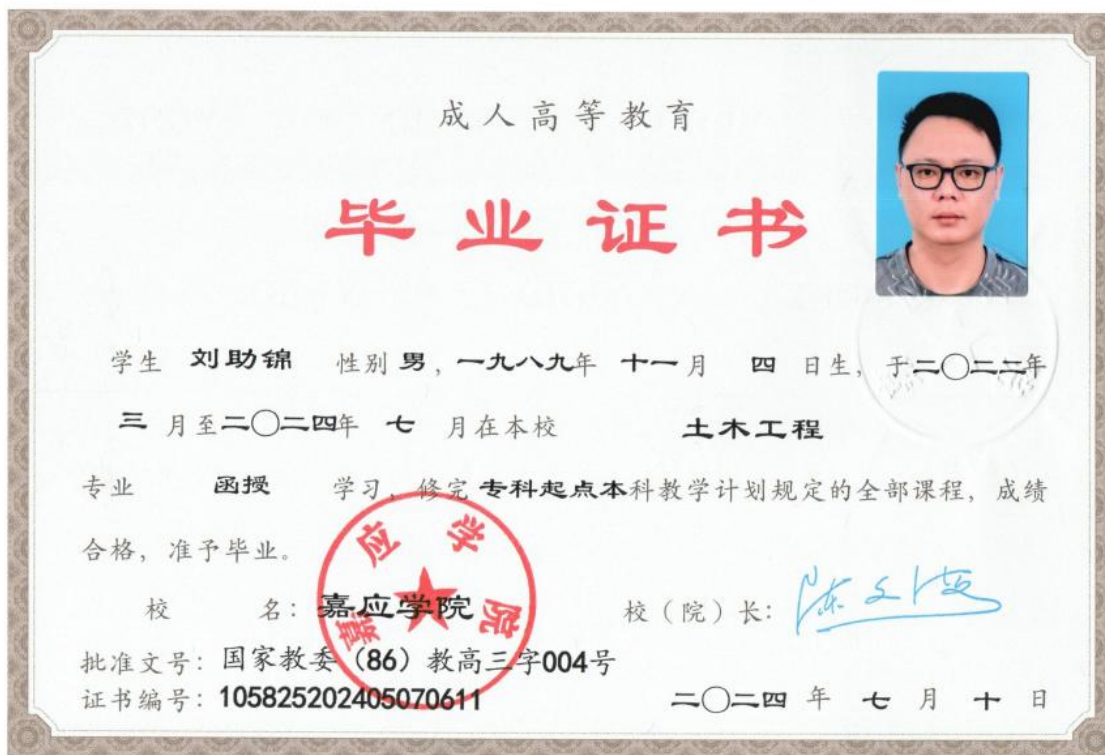 成人高等教育
毕业证书
学生 刘助锦 性别 男，一九八九年 十一月 四 日生，于二〇二二年
三 月至二〇二四年 七 月在本校 土木工程
专业 函授 学习，修完 专科起点本科教学计划规定的全部课程，成绩
合格，准予毕业。
校 名：嘉应学院 校（院）长：
嘉应学院
批准文号：国家教委（86）教高三字004号
证书编号：105825202405070611 二〇二四 年 七 月 十 日